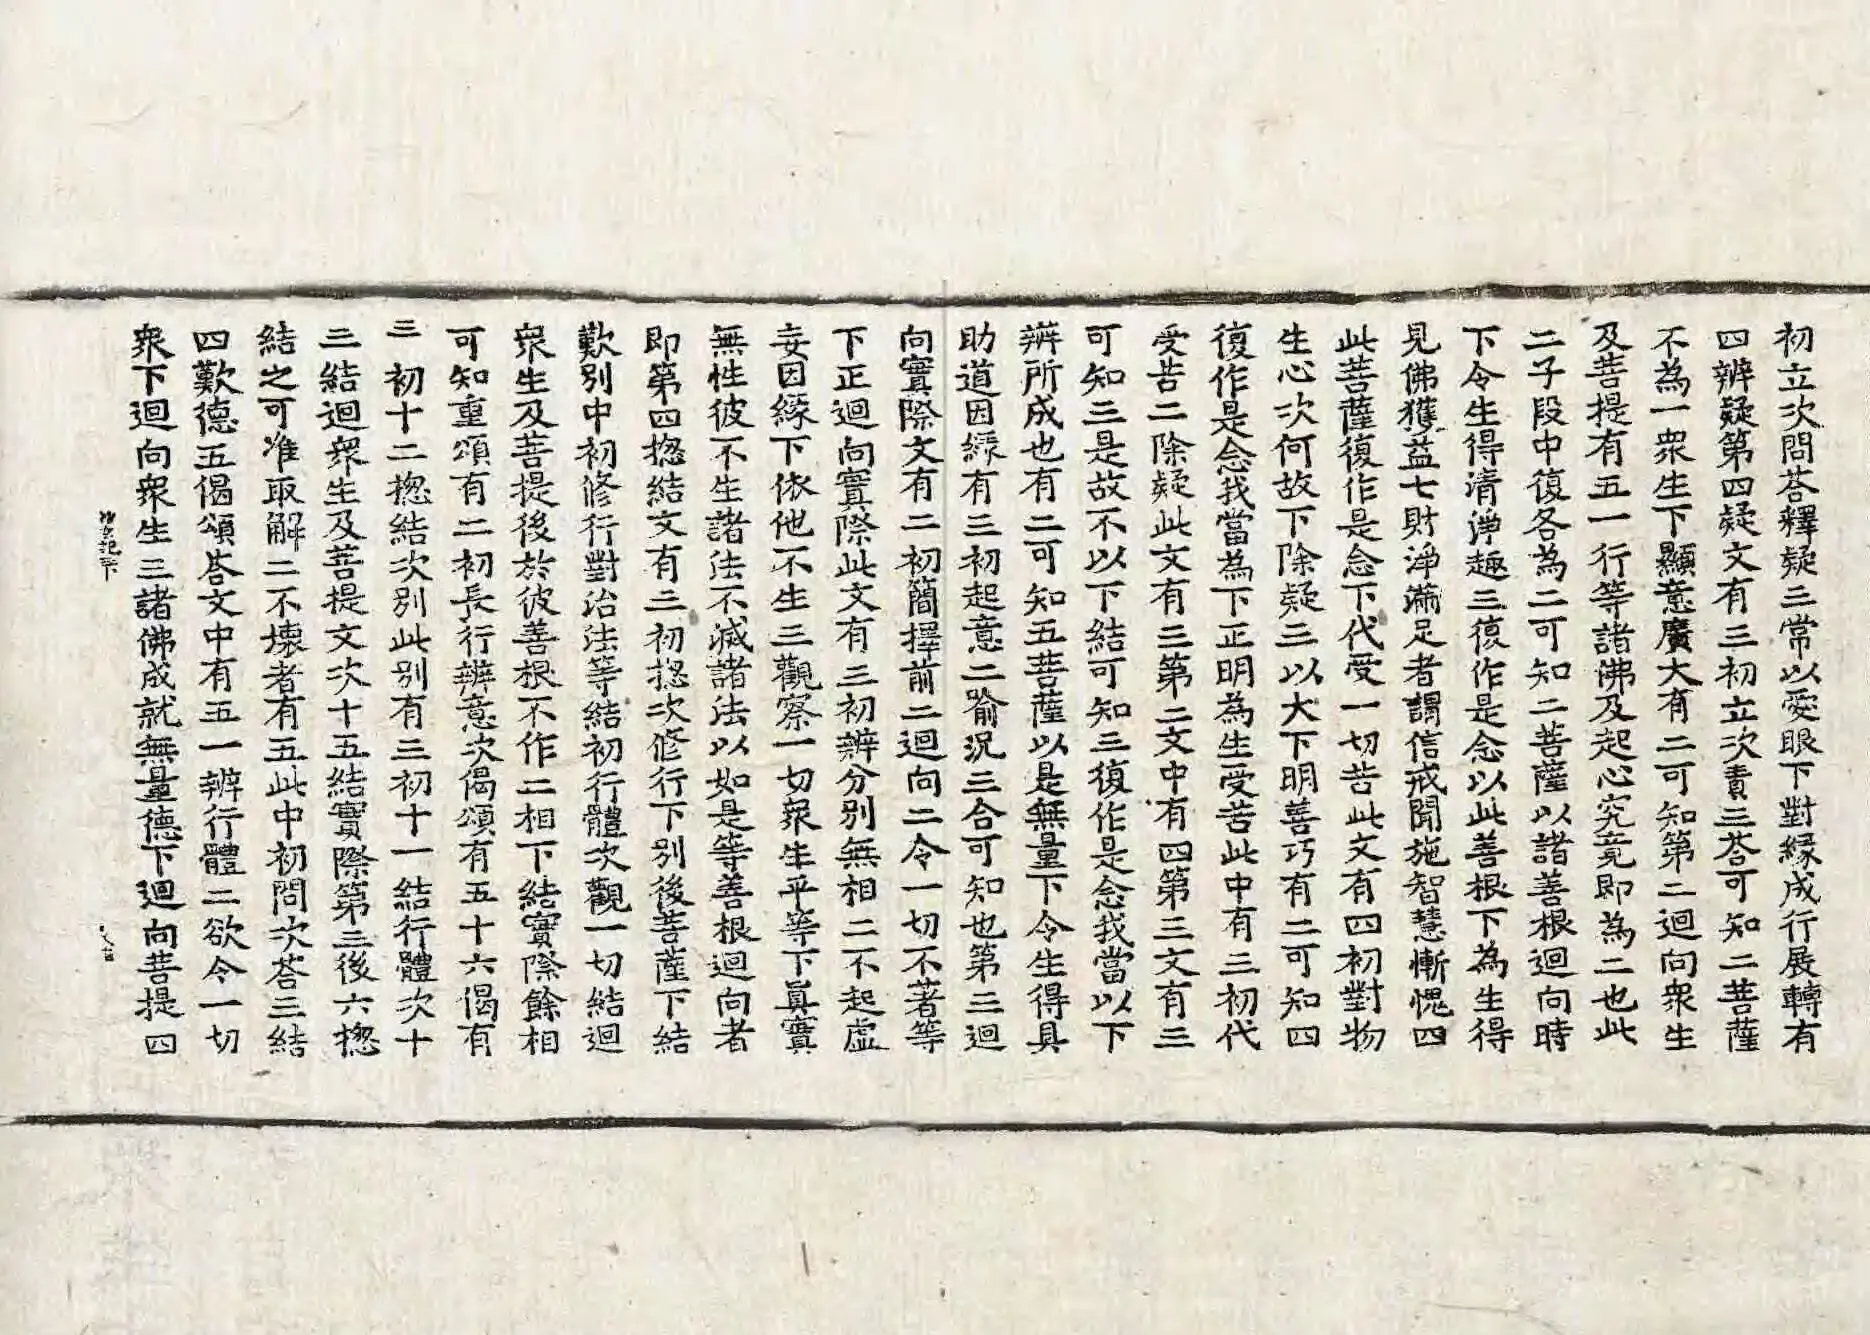 初立次問荅釋疑三常以愛眼下對緣成行展轉有
四辨疑第四疑文有三初立次責三荅可知二菩薩
不為一衆生下顯意廣大有二可知第二迴向衆生
及菩提有五一行等諸佛及起心究竟即為二也此
二子段中復各為二可知二菩薩以諸善根迴向時
下令生得清淨趣三復作是念以此善根下為生得
見佛獲益七財淨滿足者謂信戒聞施智慧慚愧四
此菩薩復作是念下代受一切苦此文有四初對物
生心次何故下除疑三以大下明善巧有二可知四
復作是念我當為下正明為生受苦此中有三初代
受苦二除疑此文有三第二文中有四第三文有三
可知三是故不以下結可知三復作是念我當以下
辨所成也有二可知五菩薩以是無量下令生得具
助道因緣有三初起意二喻況三合可知也第三迴
向實際文有二初簡擇前二迴向二令一切不著等
下正迴向實際此文有三初辨分別無相二不起虛
妄因緣下依他不生三觀察一切衆生平等下眞實
無性彼不生諸法不滅諸法以如是等善根迴向者
即第四揔結文有三初揔次修行下別後菩薩下結
歎別中初修行對治法等結初行體次觀一切結迴
衆生及菩提後於彼善根不作二相下結實際餘相
可知重頌有二初長行辨意次偈頌有五十六偈有
三初十二揔結次別此別有三初十一結行體次十
三結迴衆生及菩提文次十五結實際第三後六揔
結之可准取解二不壞者有五此中初問次荅三結
四歎德五偈頌荅文中有五一辨行體二欲令一切
衆下迴向衆生三諸佛成就無量德下迴向菩提四